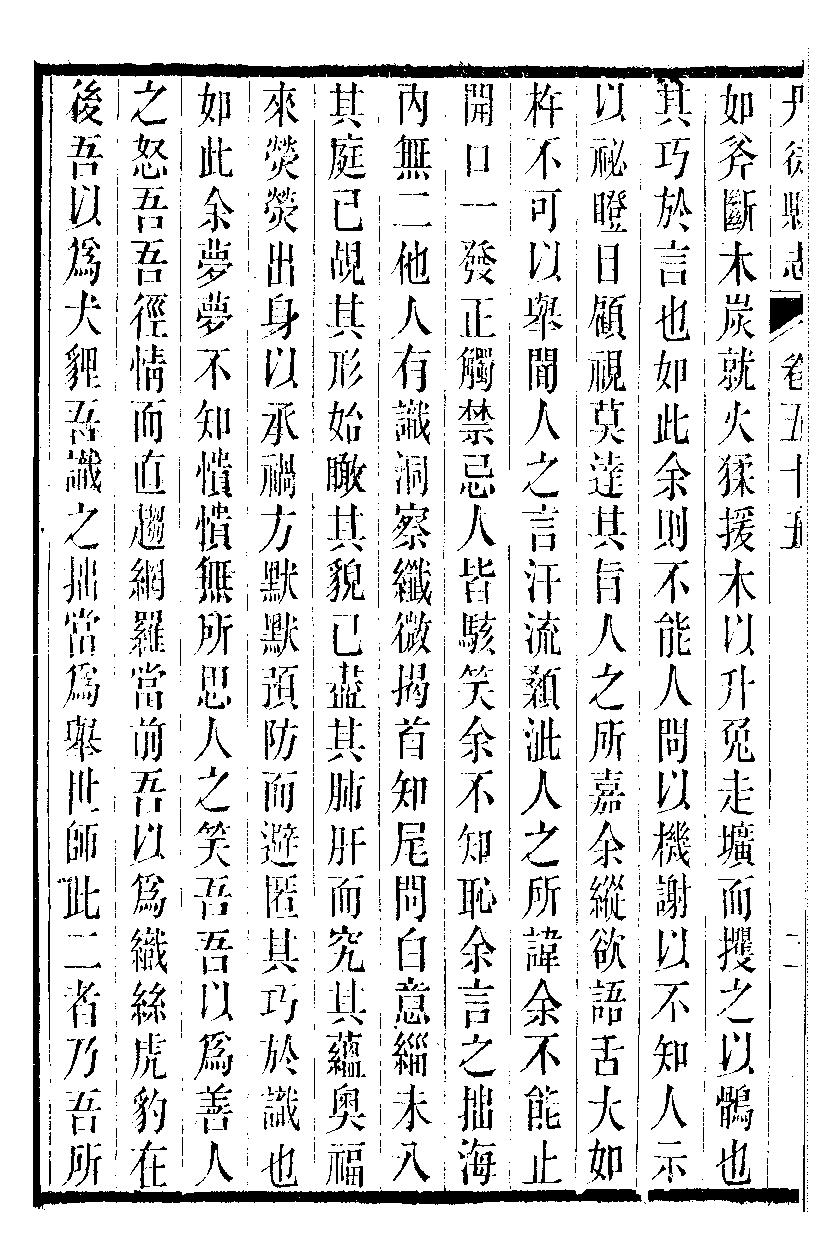 丹徒縣志 卷五十五 二
如斧斷木炭就火猱援木以升兔走壙而攫之以鶻也
其巧於言也如此余則不能人問以機謝以不知人示
以祕瞪目顧視莫達其旨人之所嘉余縱欲語舌大如
杵不可以舉聞人之言汗流顙泚人之所諱余不能止
開口一發正觸禁忌人皆駭笑余不知恥余言之拙海
內無二他人有識洞察纖微揭首知尾問白意緇未入
其庭已覘其形始瞰其貌已盡其肺肝而究其蘊奧福
來熒熒出身以承禍方默默預防而避匿其巧於識也
如此余夢夢不知憒憒無所思人之笑吾吾以爲善人
之怒吾吾徑情而直趨網羅當前吾以爲織絲虎豹在
後吾以爲犬貍吾識之拙當爲舉世師此二者乃吾所